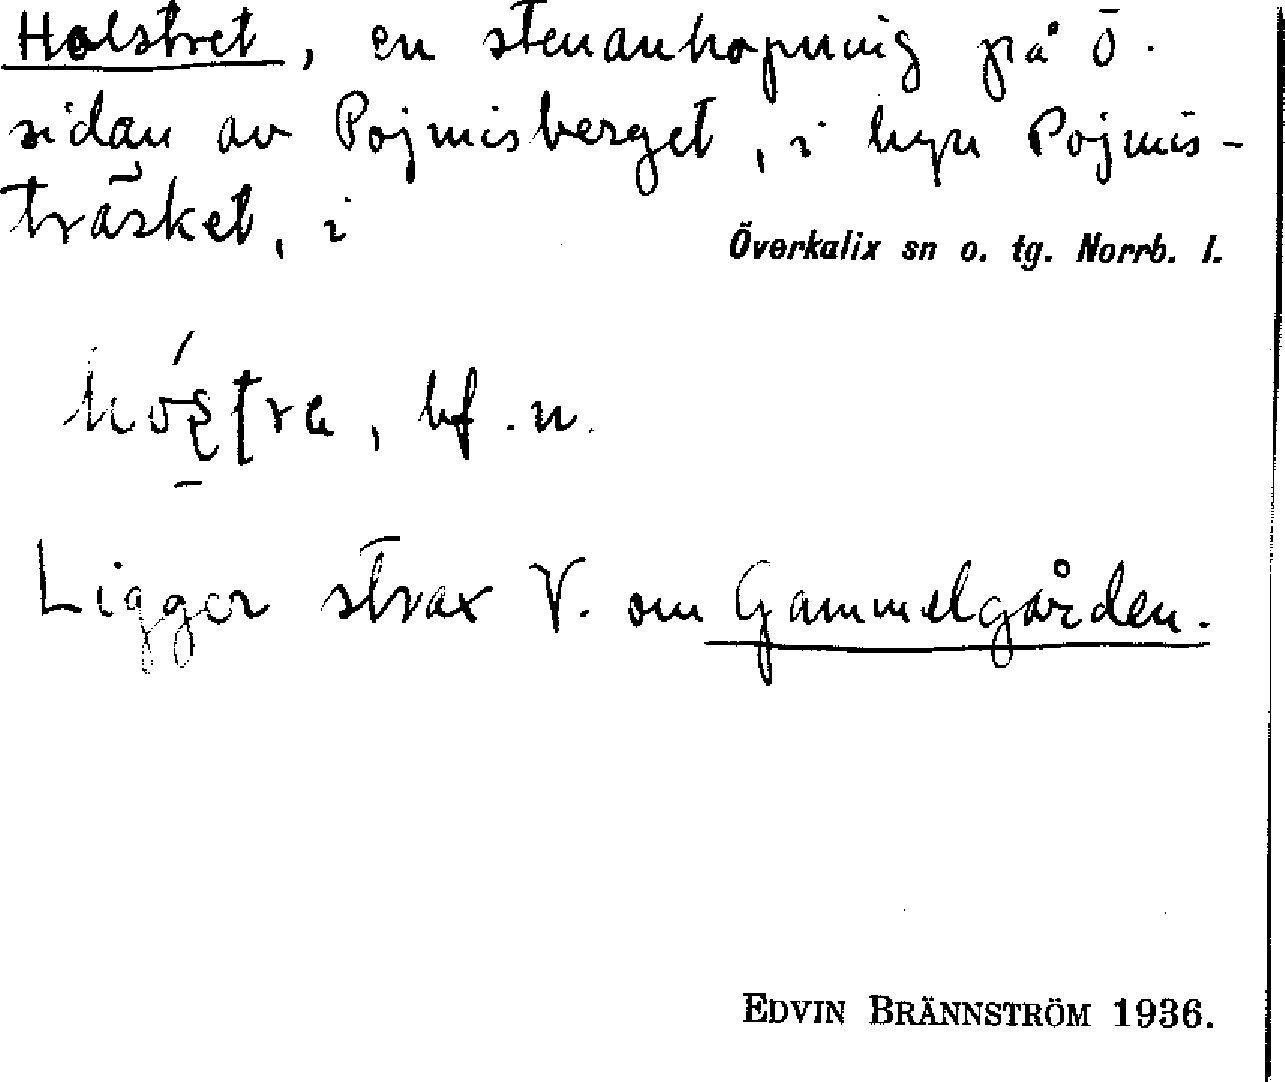 Holstret, en stenanhopning på Ö.
sidan av Pojmisberget, i byn Pojmis-
träsket, i
Överkalix sn o. tg. Norrb. l.
, bf. n.
Ligger strax V. om Gammelgården.
EDVIN BRÄNNSTRÖM 1936.